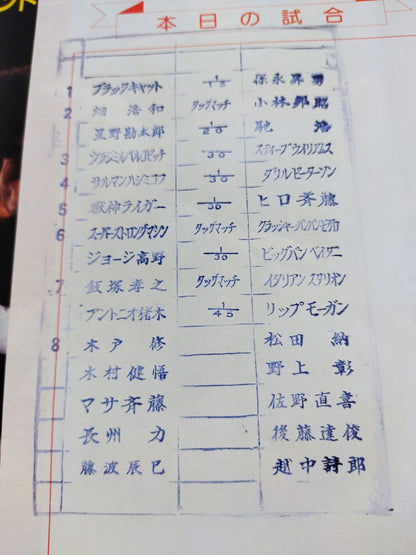 本日の試合
1 ブラックキャット 1/15 保永昇男
2 畑浩和 タッグマッチ 小林邦昭
星野勘太郎 1/20 馳浩
3 ウラジミール・ベルコビッチ 1/30 スティーブウイリアムス
4 サルマンハシミコフ 1/30 ダリルピーターソン
5 獣神ライガー 1/30 ヒロ斉藤
6 スーパーストロングマシン タッグマッチ クラッシャーバンバンビガロ
ジョージ高野 1/30 ビッグバンベイダー
7 飯塚孝之 タッグマッチ イタリアンステリオン
アントニオ猪木 1/45 リップモーガン
8 木戸修 松田納
木村健悟 野上彰
マサ斉藤 佐野直喜
長州力 後藤達俊
藤波辰巳 越中詩郎